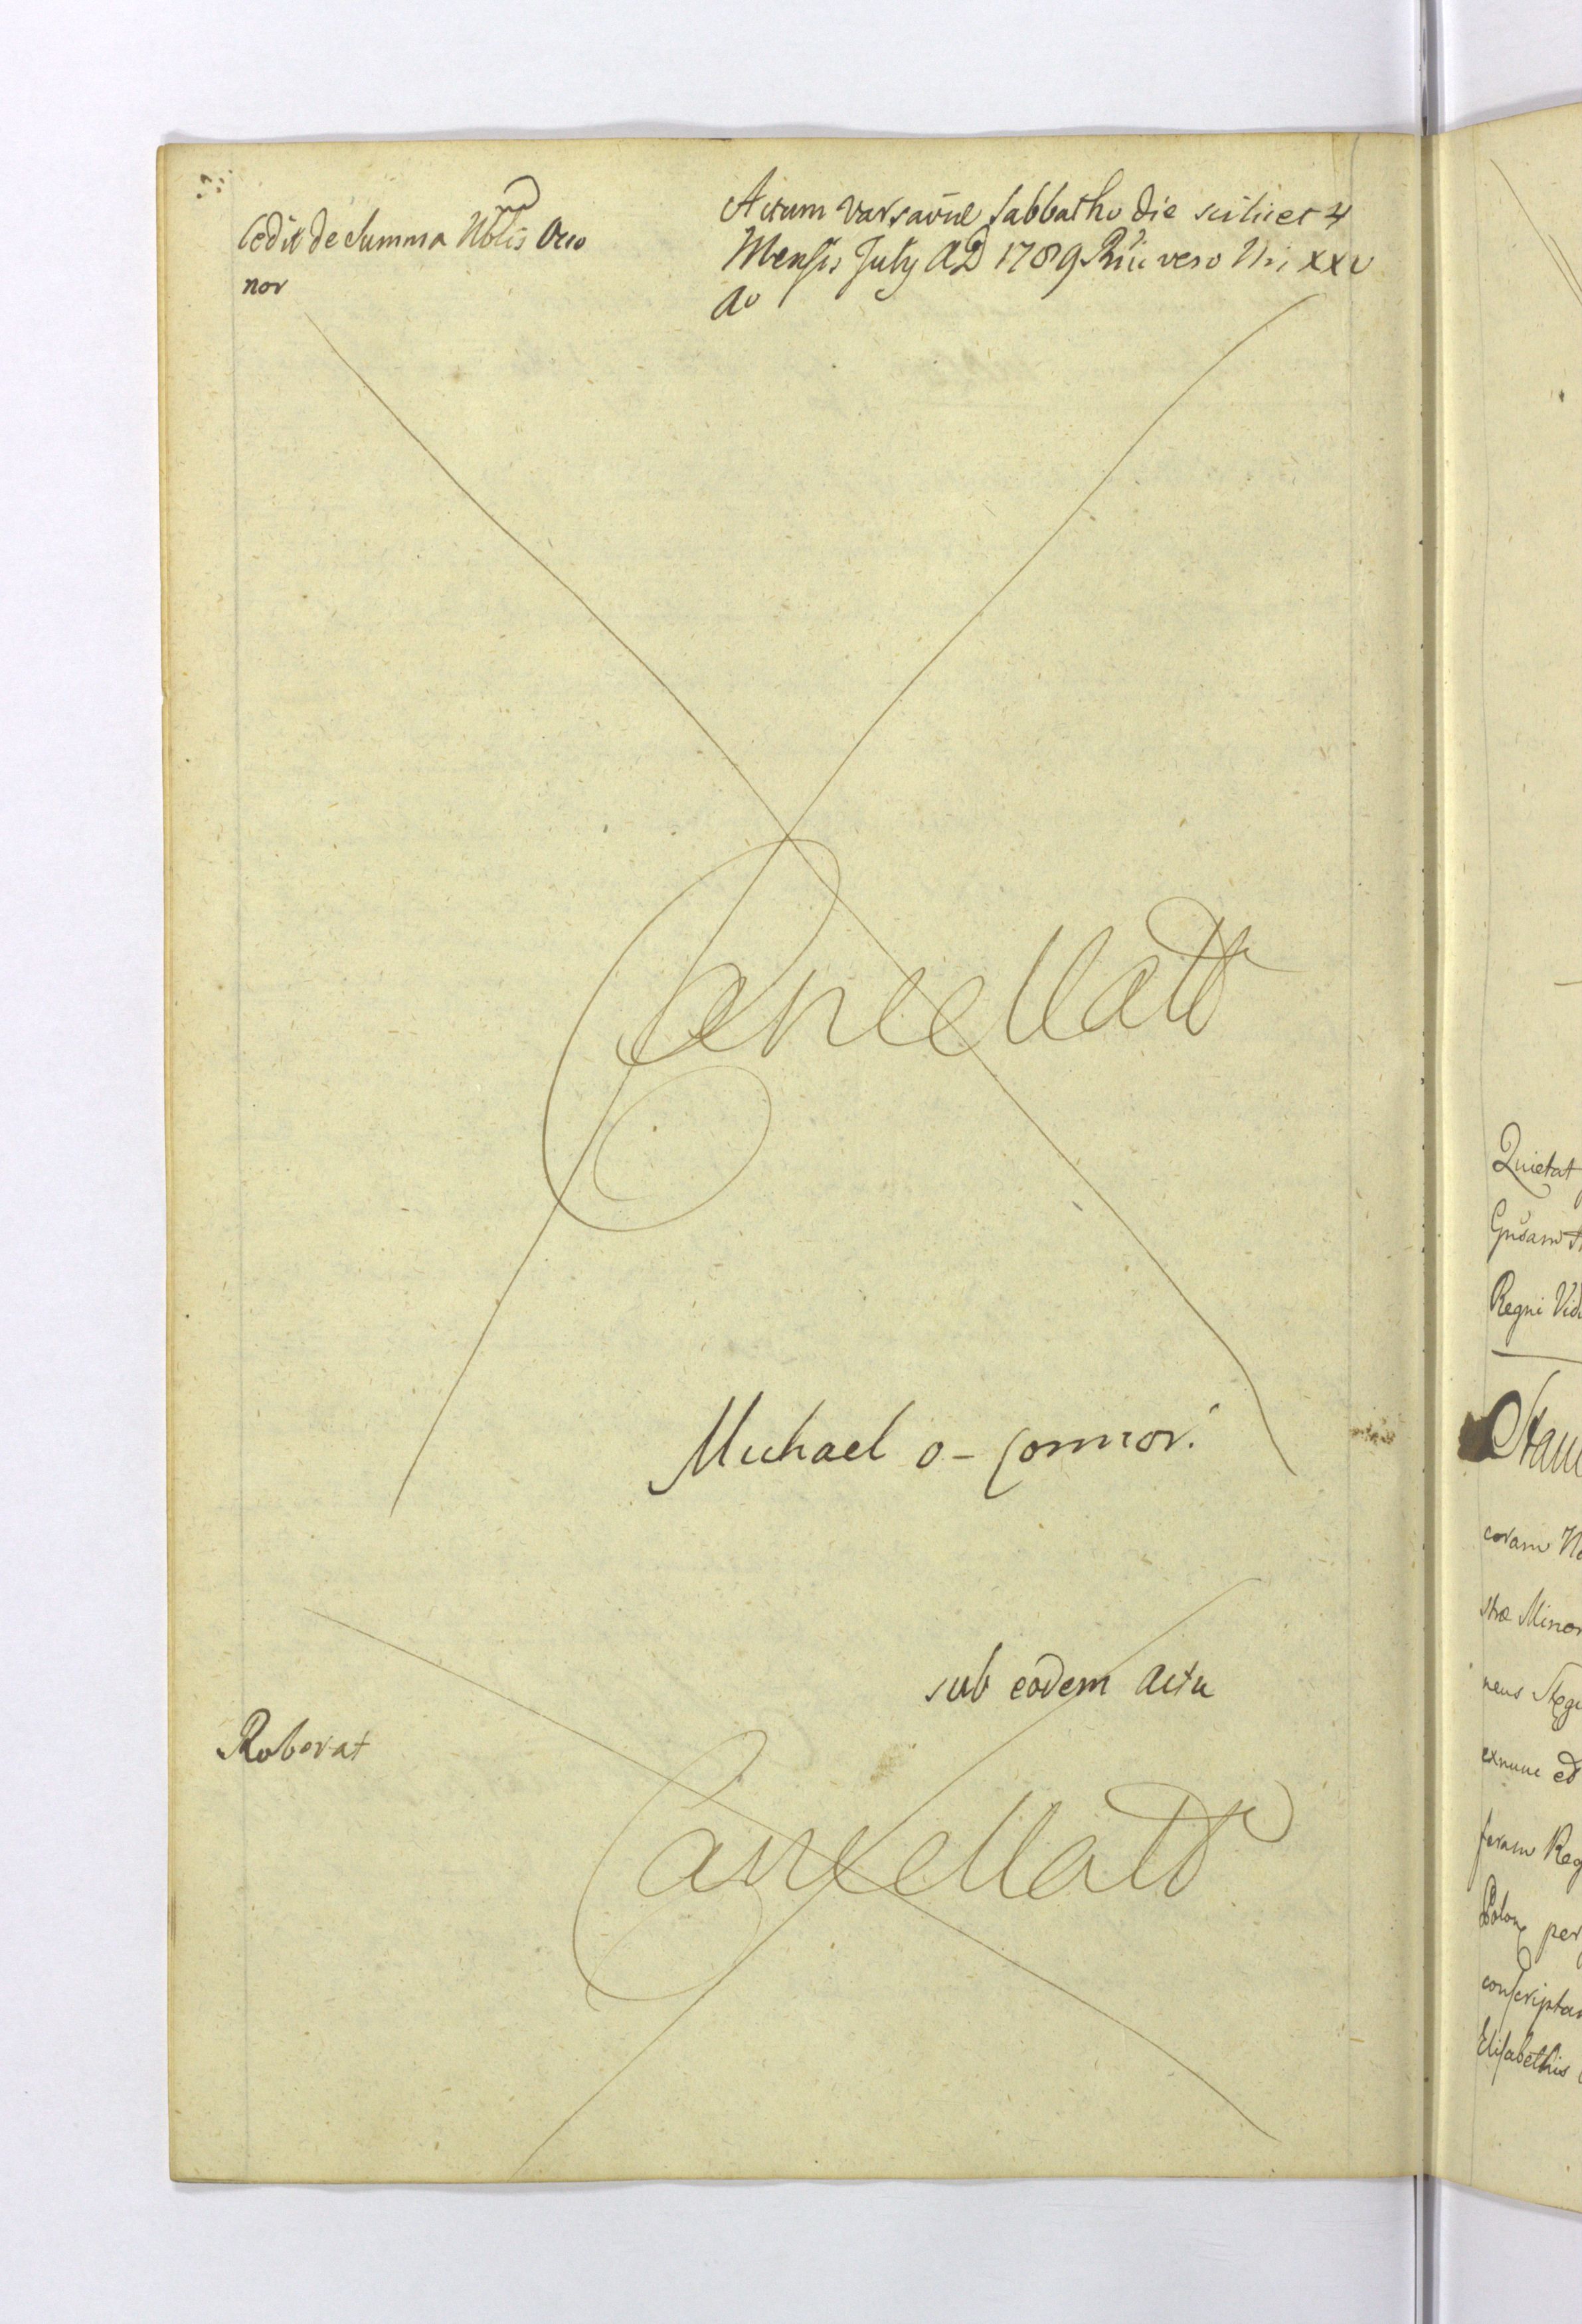 Cedit de Summa Nblis Oco
nor
Actum Varsaviae Sabbatho die scilicet 4
Mensis July AD 1789 Rñii vero Nri XXV
Ao
Cancellatt
Michael o-Connor.
sub eodem Actu
Roborat
Cancellatt
Quietat
Gnosam
Regni
coram
stræ Minor
exnunc
feram Reg
Polon per
conscriptam
Elisabethis